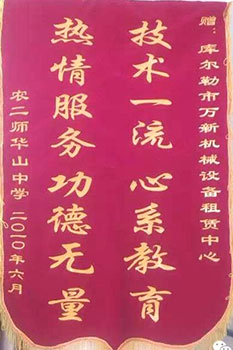 赠：库尔勒市万新机械设备租赁中心
技术一流 心系教育
热情服务功德无量
农二师华山中学 二〇一〇年六月